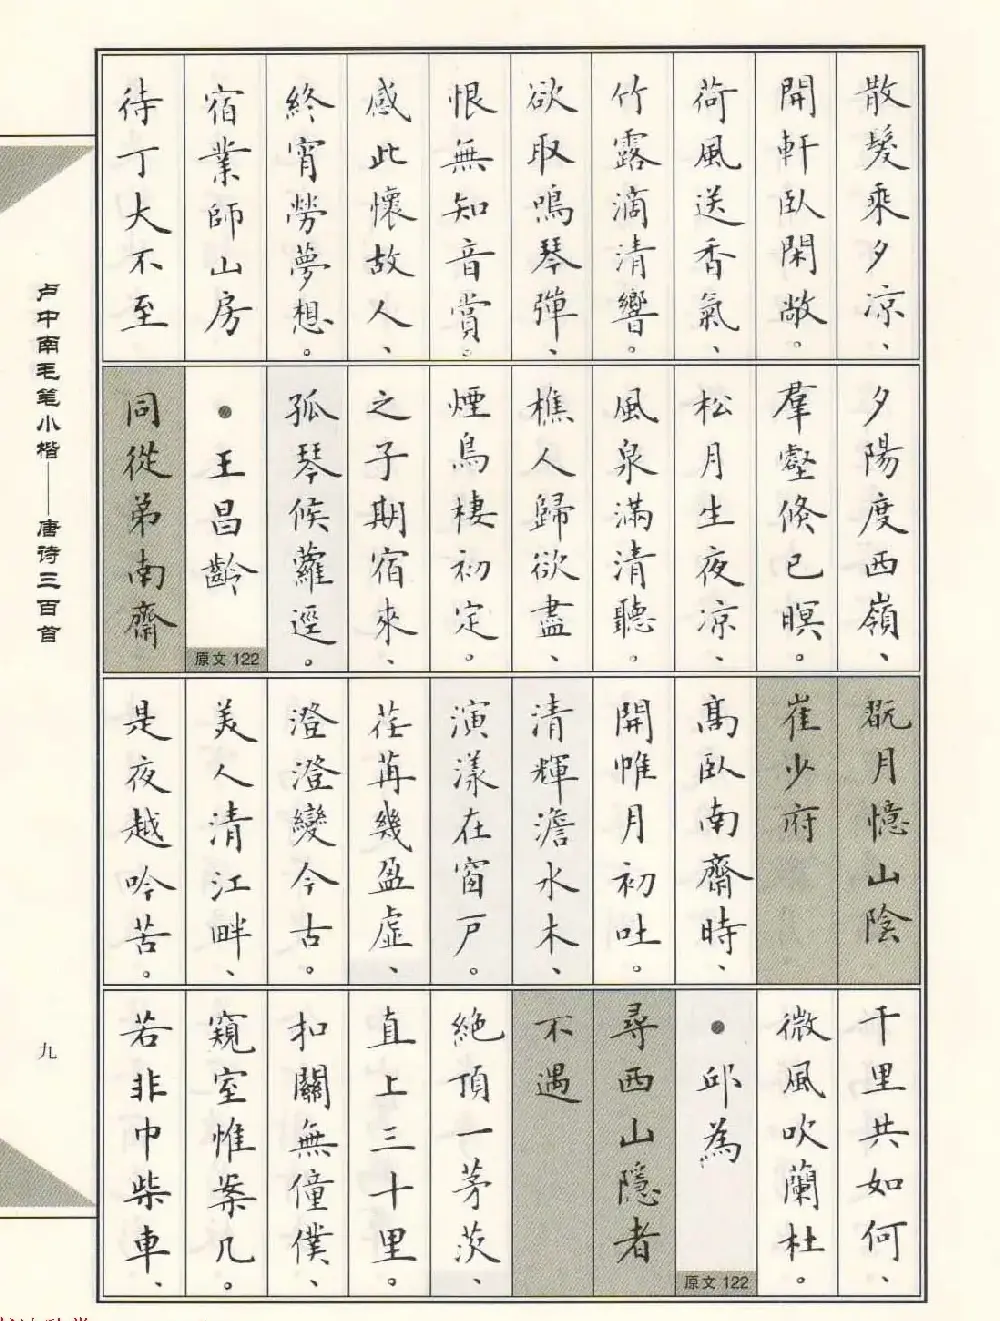 散髮乘夕凉、
開軒臥閑敞。
荷風送香氣、
竹露滴清響。
欲取鳴琴彈、
恨無知音賞。
感此懷故人、
終宵勞夢想。
宿業師山房
待丁大不至
夕陽度西嶺、
羣壑倐已暝。
松月生夜凉、
風泉滿清聽。
樵人歸欲盡、
煙鳥棲初定。
之子期宿來、
孤琴候蘿逕。
●王昌齡
原文 122
同從弟南齋
翫月憶山陰
崔少府
高臥南齋時、
開帷月初吐。
清輝澹水木、
演漾在窗戸。
荏苒幾盈虛、
澄澄變今古。
美人清江畔、
是夜越吟苦。
千里共如何、
微風吹蘭杜。
●邱為
原文 122
尋西山隱者
不遇
絶頂一茅茨、
直上三十里。
扣關無僮僕、
窺室惟案几。
若非巾柴車、
卢中南毛笔小楷——唐诗三百首
九